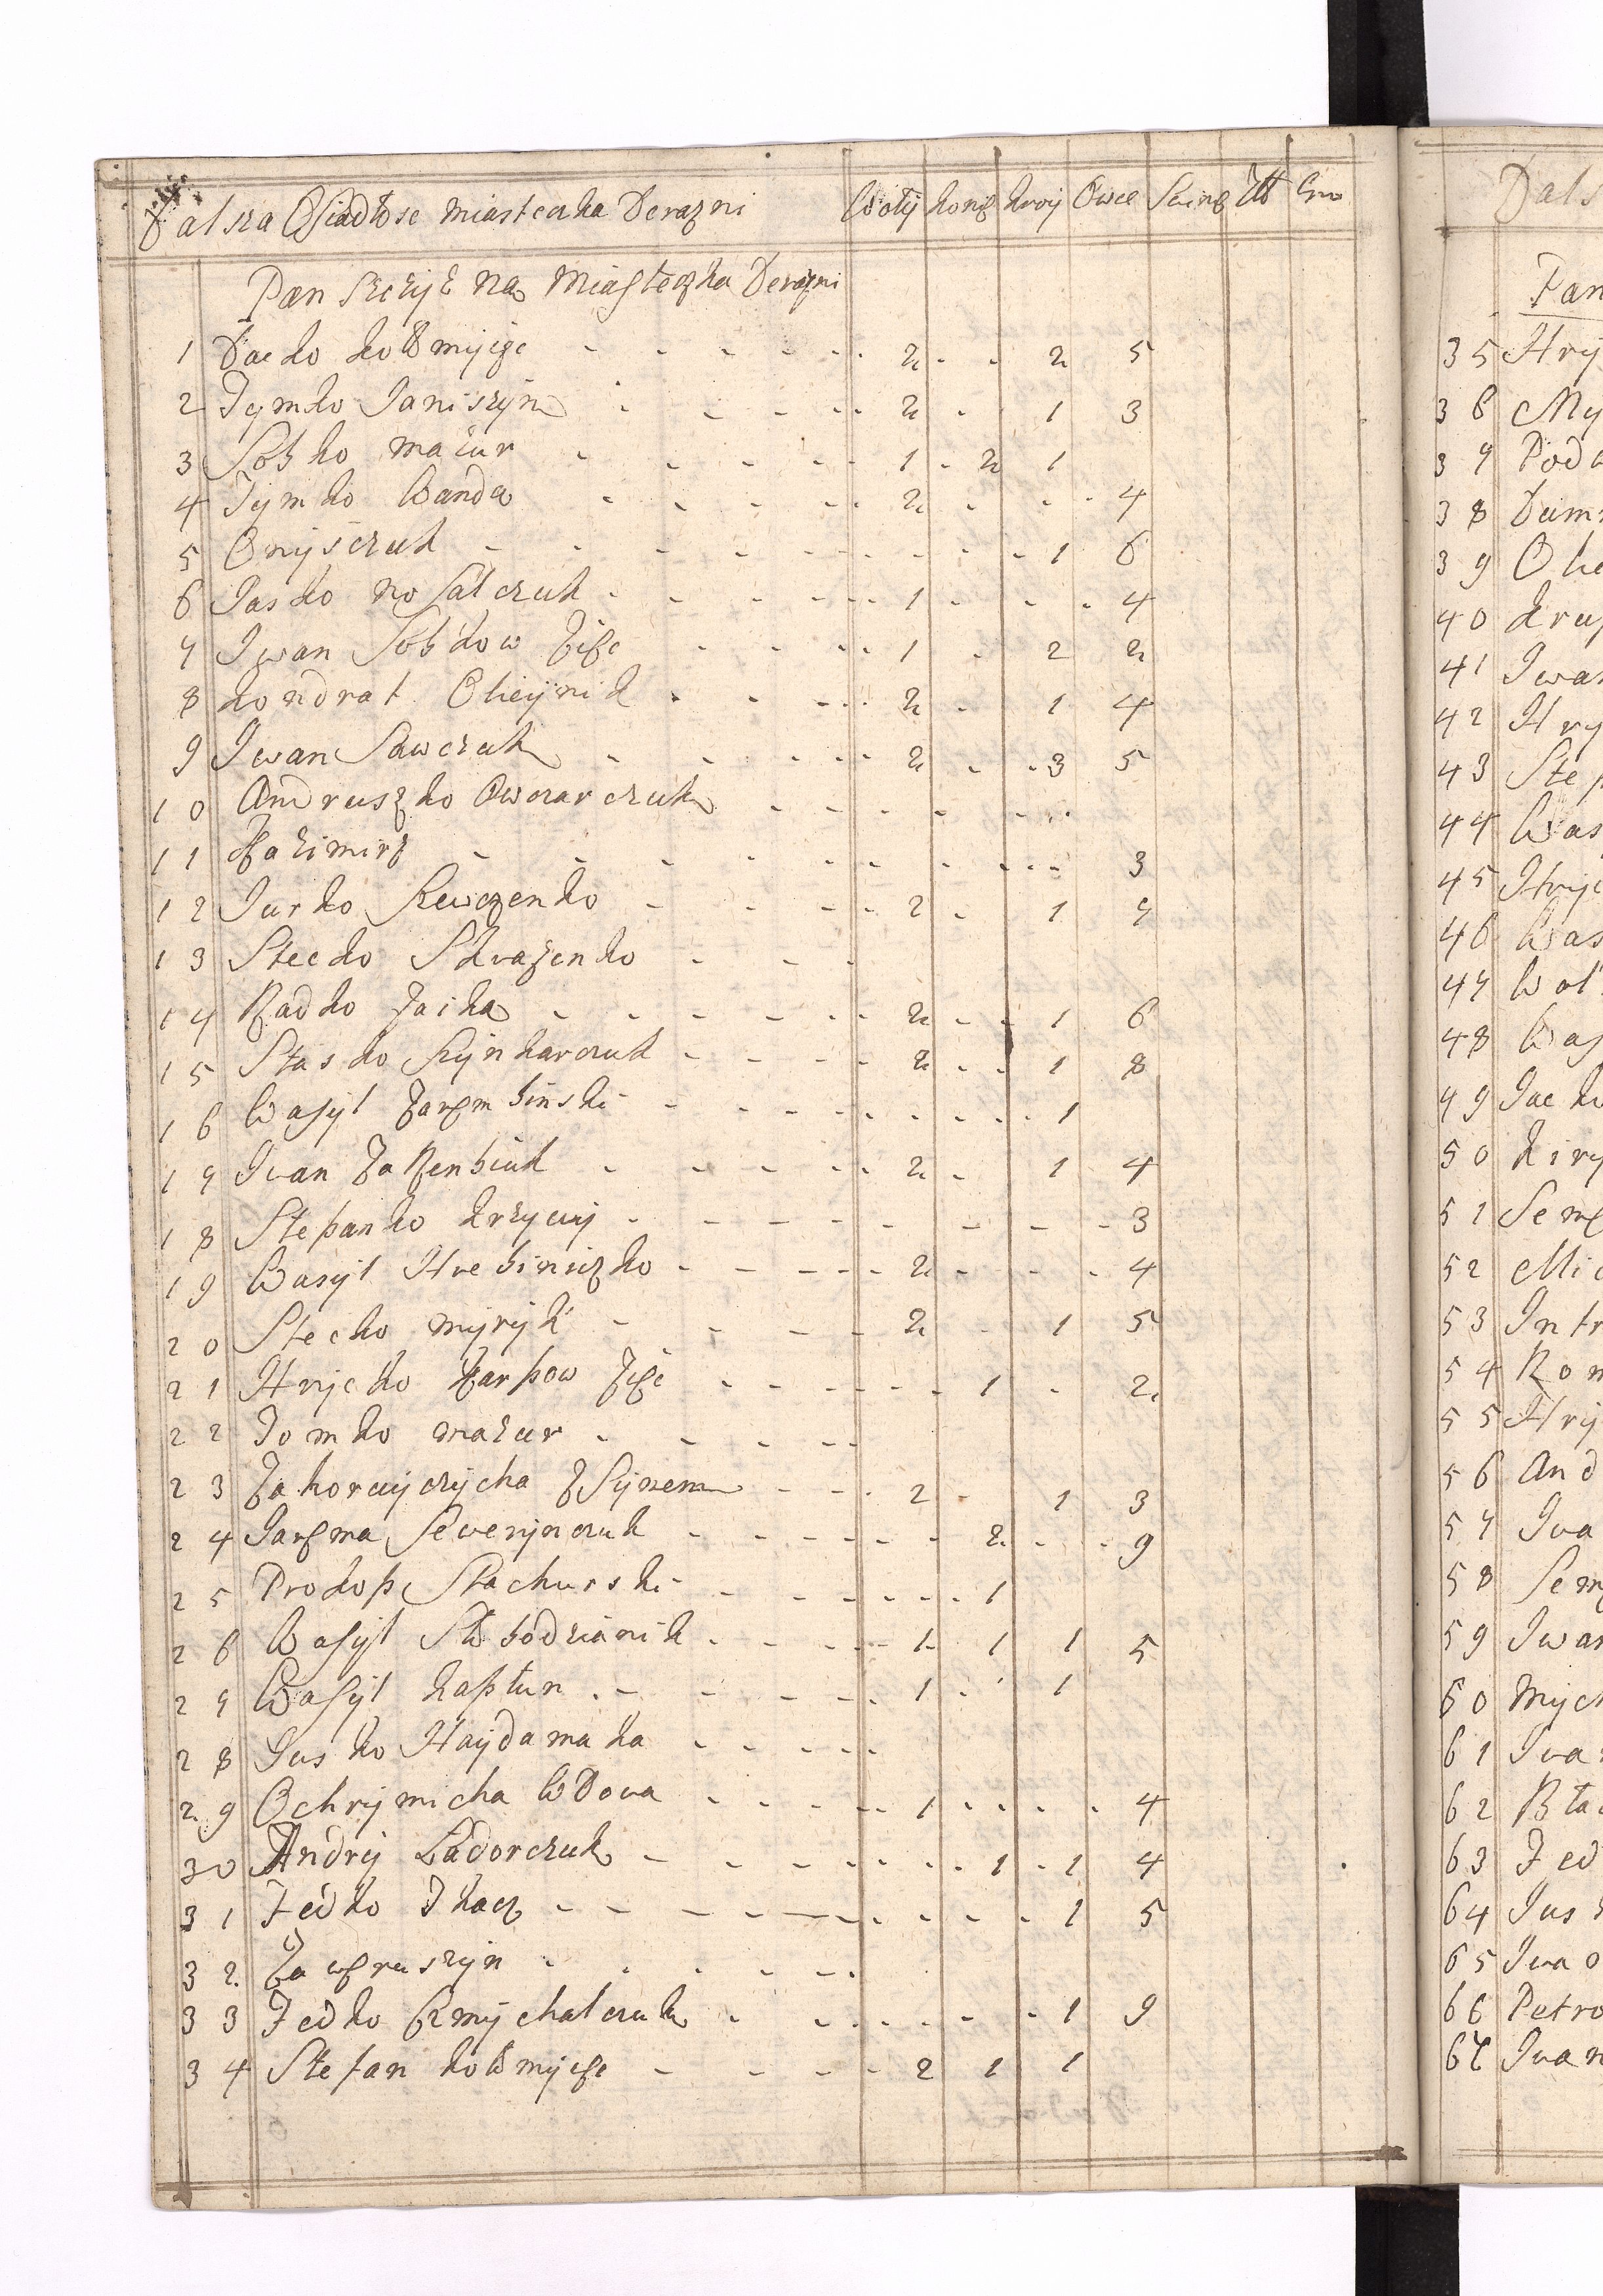 Dalsza Osiadłosc Miasteczka Derazni Woły konie krowy Owce Swinie Zł Gro
Panszczyzna Miasteczka Derazni
1 Dacko kołomyiec 2 2 5
2 Tymko Janiszyn 2 1 3
3 Sobko mazur 1 2 1
4 Tymko Banda 2 4
5 Onyszczuk 1 6
6 Jasko nosalczuk 1 4
7 Iwan Sobkow zięc 1 2 2
8 kondrat Oleynik 2 1 4
9 Iwan Sawczuk 2 3 5
10 Andruszko Owczarczuk
11 Kazimirz 3
12 Jurko Szewczenko 2 1 7
13 Stecko
14 Radko Zaika 2 1 6
15 Stasko Szynkarczuk 2 1 8
16 Wasyl Zarembinski 1
17 Iwan 2 1 4
18 Stepanko krzywy 3
19 Wasyl Hrebiniczko 2 4
20 Stecko myryk 2 1 5
21 Hrycko karpow zięc 1 2
22 Tomko mazur
23 Zahorwyczycha z Synem 2 1 3
24 Jarema Sewerynczuk 2 9
25 Prokop Stachurski 1
26 Wasyl Słobodzianik 1 1 1 5
27 Wasyl kapłun 1 1
28 Jusko Haydamaka
29 Ochrymicha Wdowa 1 4
30 Andry Ladorczuk 1 1 4
31 Fedko Tkacz 1 5
32
33 Fedko Chmychalczuk 1 9
34 Stefan kołomyiec 2 1 1
Dals
Pan
35 Hry
36 My
37 Pod
38 Dem
39 Ole
40 kru
41 Iwa
42 Hry
43 Step
44 Was
45 Hryc
46 Was
47 Woł
48 Was
49 Jack
50 kiry
51 Sem
52 Mic
53 Intr
54 Rom
55 Hry
56 And
57 Iwa
58 Sem
59 Iwan
60 Mych
61 Iwa
62 Bła
63 Fed
64 Jusk
65 Iwa
66 Petro
67 Iwan